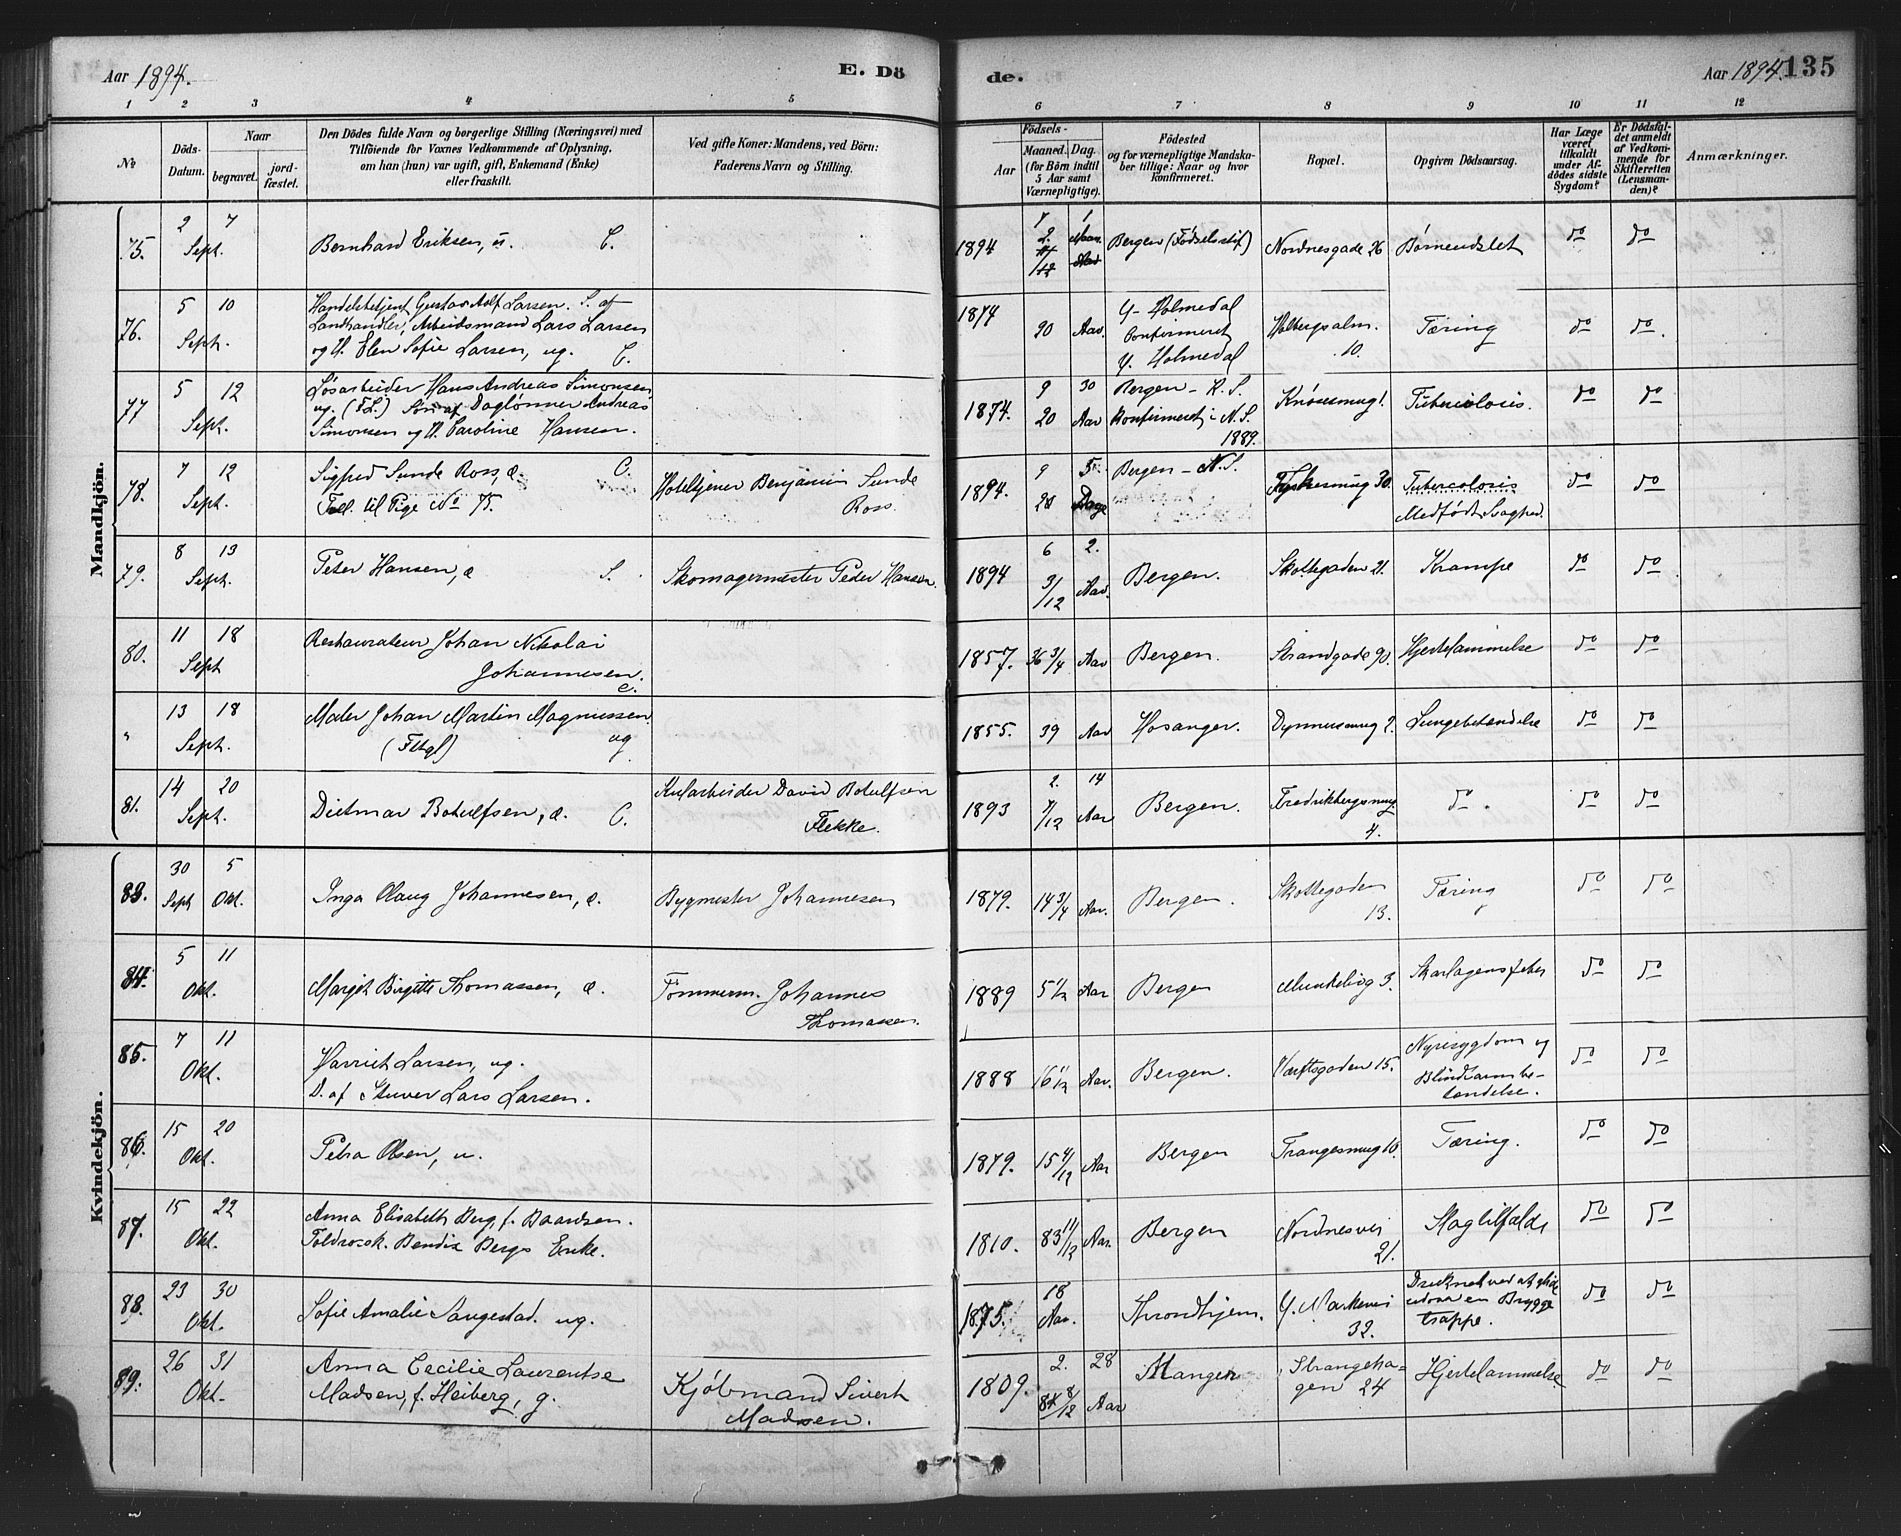 Aar 1894.
E. Dö
de.
Aar 1894. 135
1 2 3 4 5 6 7 8 9 10 11 12
No
Döds-
Datum.
Naar
begravet.
jord-
fæstet.
Den Dödes fulde Navn og borgerlige Stilling (Næringsvei) med
Tilföiende for Voxnes Vedkommende af Oplysning,
om han (hun) var ugift, gift, Enkemand (Enke)
eller fraskilt.
Ved gifte Koner: Mandens, ved Börn:
Faderens Navn og Stilling.
Födsels-
Aar
Maaned. Dag.
(for Börn indtil
5 Aar samt
Værnepligtige).
Födested
og for værnepligtige Mandska-
ber tillige: Naar og hvor
konfirmeret.
Bopæl.
Opgiven Dödsaarsag.
Har Læge
været
tilkaldt
under Af-
dödes sidste
Sygdom?
Er Dödsfal-
det anmeldt
af Vedkom-
mende for
Skifteretten
(Lensman-
den)?
Anmærkninger.
Mandkjön.
75. 2 7 Sept. Bernhard Eriksen, u. C. 1894 Bergen (Födselsstif) Nordnesgade 26 Børneudslet do do
76. 5 10 Sept.
Landhandler, Arbeidsmand Lars Larsen
og H. Elen Sofie Larsen, ug. C.
1874 20 Aar Y. Holmedal
Confirmeret
Y. Holmedal
Holbergsalm.
10.
Tæring do do.
77 5 12 Sept. Løsarbeider Hans Andreas Simonsen
ug. (F.L.) Søn af Daglønner Andreas
Simonsen og H. Caroline Hansen.
1874. 9 30
20 Aar
Bergen - K. S.
Konfirmeret i N. S.
1889.
Knøsesmug 1. Tuberculosis. do do
78. 7 12 Sept. Sigfred Sunde Ross, æ. C.
Tvil. til Pige No 75.
Hoteltjener Benjamin Sunde
Ross.
1894. 9 5
28 Dage
Bergen - N. S.
30. Tuberculosis
Medfødt Svaghed.
do do
79. 8 13 Sept. Peter Hansen, æ S. Skomagermester Peder Hansen. 1894 6 2.
3/12 Aar.
Bergen. Skottegaden 21. Krampe do do
80. 11 18 Sept Restaurateur Johan Nikolai
Johannesen.
e.
1857. 36 3/4 Aar Bergen. Strandgade 90. Hjertelammelse do do
" 13 18 Sept. Maler Johan Martin Magnussen
(Fltgl) ug
1855. 39 Aar Hosanger. 2. Lungebetændelse do do
81. 14 20 Sept. Dietmar Botulfsen, æ. C. Kularbeider David Botulfsen
Flekke.
1893 2. 14
7/12 Aar
Bergen. Fredrikbergsmug.
4.
do. do do
Kvindekjön.
83. 30 5 Sept Okt. Inga Olaug Johannesen, æ. Bygmester Johannesen 1879. 14 3/4 Aar. Bergen. Skottegaden
13.
Tæring do do
84. 5 11 Okt. Margit Birgitte Thomassen, æ. Tømmerm. Johannes
Thomassen.
1889 5 1/2 Aar Bergen Munkebiog 3. Skarlagensfeber do do
85. 7 11 Okt. Harriet Larsen, ug.
D. af Stuver Lars Larsen.
1888 16 11/12 Aar. Bergen. Værftsgaden 15. Nyresygdom og
Blindtarmbe-
tændelse.
do do
86. 15 20 Okt. Petra Olsen, u. 1879. 15 4/12 Aar Bergen Trangesmug 10. Tæring. do do
87. 15 22 Okt. Anna Elisabeth Berg, f. Baardsen.
Toldrorsk. Bendix Bergs Enke.
1810. 83 11/12 Aar. Bergen Nordnesvei
21.
Slagtilfælde do do
88. 23 30 Okt. Sofie Amalie Saugestad. ug. 1875. 18
Aar.
Throndhjem. Y. Markevei
32.
Druknet ved at glide
udover en Brygge
trappe.
do do
89. 26 31 Okt. Anna Cecilie Laurentse
Madsen, f. Heiberg, g.
Kjøbmand Sivert
Madsen.
1809. 2. 28
84 8/12 Aar
Manger Strangeha-
gen 24
Hjertelammelse do do